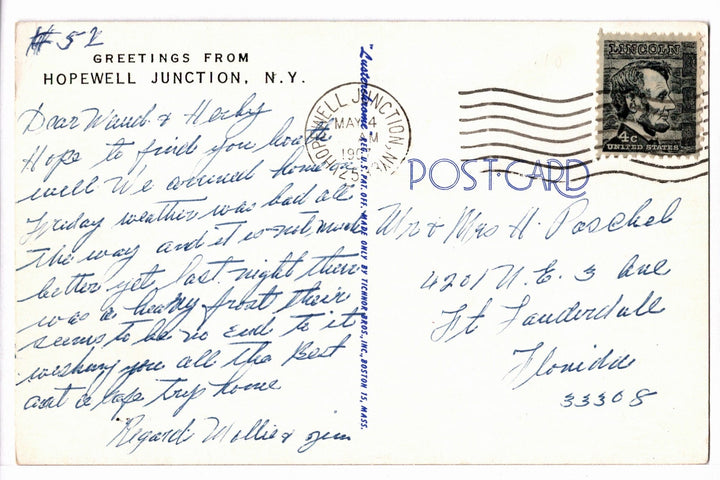 # 52
GREETINGS FROM
HOPEWELL JUNCTION, N.Y.
Dear Waud & Hecky
Hope to find you both
well We arrived home
Friday weather was bad all
the way and it is not much
better yet. last night there
was a heavy frost their
seems to be no end to it
wishing you all the Best
and a safe trip home
Regard Mollie & Jim
"Lusterchrome" REG. U.S. PAT. OFF. MADE ONLY BY TICHNOR BROS., INC., BOSTON 15, MASS.
HOPEWELL JUNCTION, N.Y.
MAY 4
M
19
125
POST CARD
LINCOLN
4c
UNITED STATES
Mr & Mrs H. Paschel
4201 N.E. 3 Ave
Ft Lauderdale
Florida
33308